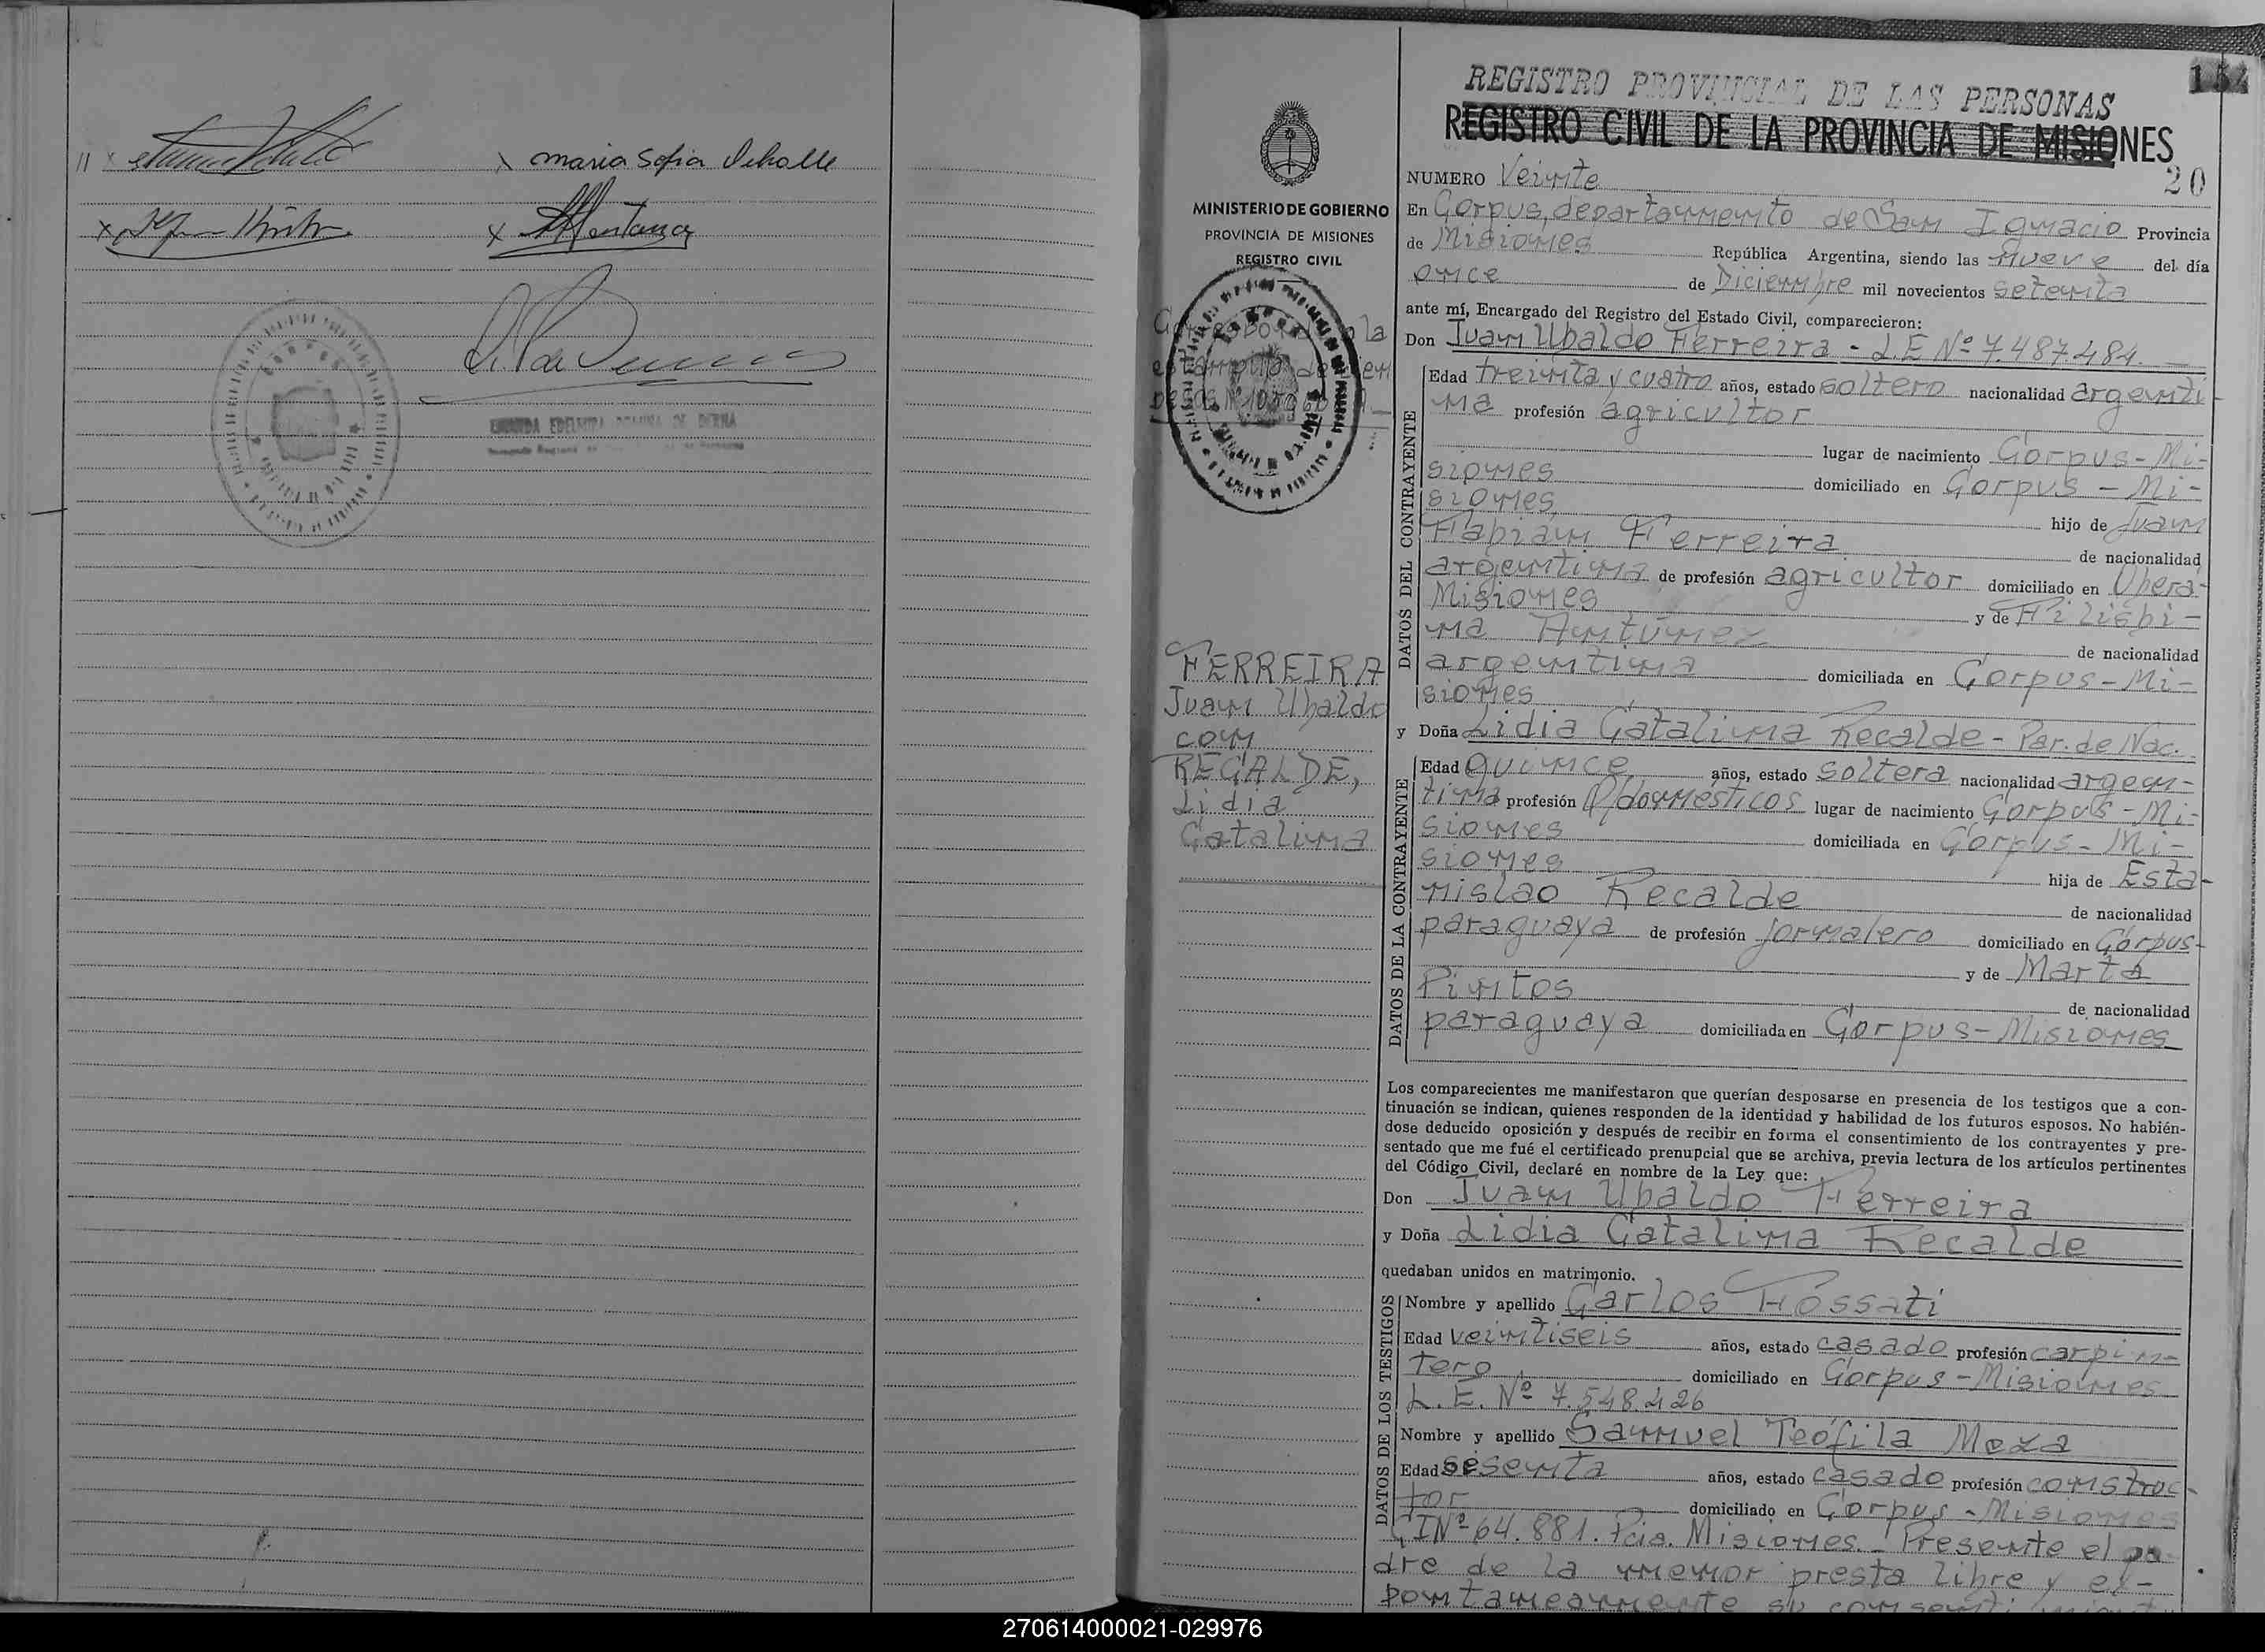 maria Sofia
REGISTRO PROVINCIAL DE LAS PERSONAS
REGISTRO CIVIL DE LA PROVINCIA DE MISIONES
MINISTERIO DE GOBIERNO
PROVINCIA DE MISIONES
REGISTRO CIVIL
FERREIRA
Juan Ubaldo
con
RECALDE,
Lidia
Catalina
NUMERO Veinte 20
En Corpus, departamento de San Ignacio Provincia
de Misiones República Argentina, siendo las nueve del día
once de Diciembre mil novecientos setenta
ante mí, Encargado del Registro del Estado Civil, comparecieron:
Don Juan Ubaldo Ferreira - L.E Nº 7.487.484.
DATOS DEL CONTRAYENTE
Edad treinta y cuatro años, estado soltero nacionalidad argenti-
na profesión agricultor
lugar de nacimiento Corpus - Mi-
siones domiciliado en Corpus - Mi-
siones hijo de Juan
Fabián Ferreira de nacionalidad
argentina de profesión agricultor domiciliado en Oberá-
Misiones y de Filisbi-
na Antúnez de nacionalidad
argentina domiciliada en Corpus - Mi-
siones
y Doña Lidia Catalina Recalde - Par. de Nac.
DATOS DE LA CONTRAYENTE
Edad Quince años, estado soltera nacionalidad argen-
tina profesión Q/domésticos lugar de nacimiento Corpus - Mi-
siones domiciliada en Corpus - Mi-
siones hija de Esta-
nislao Recalde de nacionalidad
paraguaya de profesión jornalero domiciliado en Corpus-
y de Marta
Pintos de nacionalidad
paraguaya domiciliada en Corpus - Misiones
Los comparecientes me manifestaron que querían desposarse en presencia de los testigos que a con-
tinuación se indican, quienes responden de la identidad y habilidad de los futuros esposos. No habién-
dose deducido oposición y después de recibir en forma el consentimiento de los contrayentes y pre-
sentado que me fué el certificado prenupcial que se archiva, previa lectura de los artículos pertinentes
del Código Civil, declaré en nombre de la Ley que:
Don Juan Ubaldo Ferreira
y Doña Lidia Catalina Recalde
quedaban unidos en matrimonio.
DATOS DE LOS TESTIGOS
Nombre y apellido Carlos Fossati
Edad veintiseis años, estado casado profesión carpin-
tero domiciliado en Corpus - Misiones
L.E. Nº 7.548.426
Nombre y apellido Samuel Teófila Meza
Edad sesenta años, estado casado profesión construc-
tor domiciliado en Corpus - Misiones
CI Nº 64.881. Pcia. Misiones. - Presente el pa
dre de la menor presta libre y es-
pontaneamente su
270614000021-029976